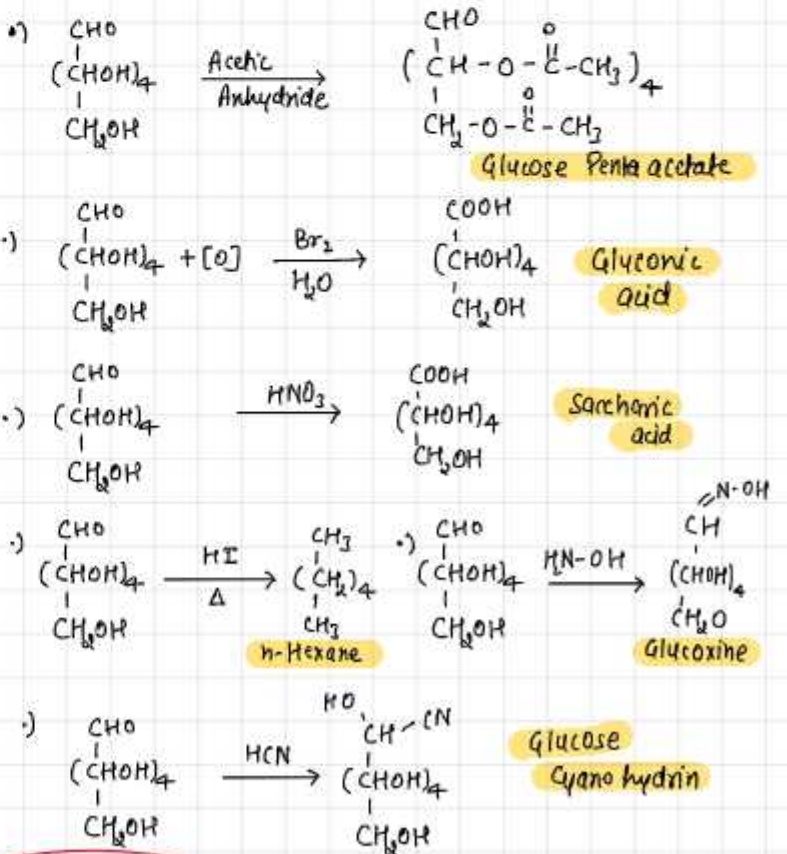 •) CHO
(CHOH)4
CH2OH
Acetic
Anhydride
CHO
O
( CH - O - C - CH3 )4
O
CH2 - O - C - CH3
Glucose Penta acetate
•) CHO
(CHOH)4 + [O]
CH2OH
Br2
H2O
COOH
(CHOH)4
CH2OH
Gluconic
acid
•) CHO
(CHOH)4
CH2OH
HNO3
COOH
(CHOH)4
CH2OH
Saccharic
acid
•) CHO
(CHOH)4
CH2OH
HI
Δ
CH3
(CH2)4
CH3
n-Hexane
•) CHO
(CHOH)4
CH2OH
H2N-OH
N-OH
CH
(CHOH)4
CH2O
Glucoxine
•) CHO
(CHOH)4
CH2OH
HCN
HO
CH - CN
(CHOH)4
CH2OH
Glucose
Cyano hydrin